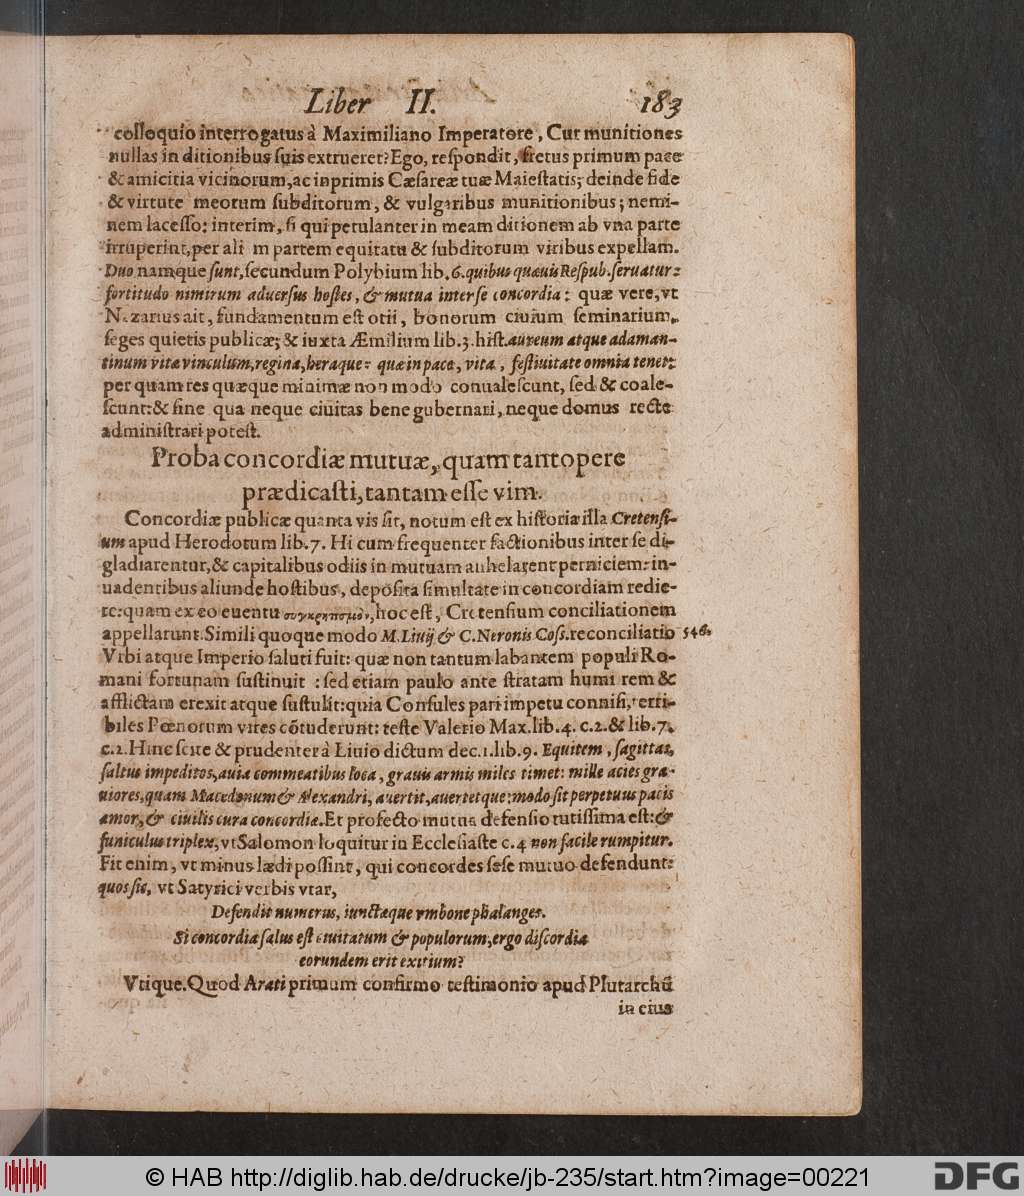 Liber II. 183
colloquio interrogatus à Maximiliano Imperatore, Cur munitiones
nullas in ditionibus suis extrueret? Ego, respondit, fretus primum pace
& amicitia vicinorum, ac inprimis Cæsareæ tuæ Maiestatis; deinde fide
& virtute meorum subditorum, & vulgaribus munitionibus; nemi-
nem lacesso: interim, si qui petulanter in meam ditionem ab vna parte
irruperint, per ali m partem equitatu & subditorum viribus expellam.
Duo namque sunt, secundum Polybium lib. 6. quibus quæuis Respub. seruatur:
fortitudo nimirum aduersus hostes, & mutua inter se concordia: quæ vere, vt
Nazarius ait, fundamentum est otii, bonorum ciuium seminarium,
seges quietis publicæ; & iuxta Æmilium lib. 3. hist. aureum atque adaman-
tinum vitæ vinculum, regina, heraque: quæ in pace, vita, festiuitate omnia tenet:
per quam res quæque minimæ non modo conualescunt, sed & coale-
scunt: & sine qua neque ciuitas bene gubernari, neque domus recte
administrari potest.
Proba concordiæ mutuæ, quam tantopere
prædicasti, tantam esse vim.
Concordiæ publicæ quanta vis sit, notum est ex historia illa Cretensi-
um apud Herodotum lib. 7. Hi cum frequenter factionibus inter se di-
gladiarentur, & capitalibus odiis in mutuam anhelarent perniciem: in-
uadentibus aliunde hostibus, deposita simultate in concordiam redie-
re: quam ex eo euentu συγκρητισμὸν, hoc est, Cretensium conciliationem
appellarunt. Simili quoque modo M. Liuij & C. Neronis Coss. reconciliatio 546.
Vrbi atque Imperio saluti fuit: quæ non tantum labantem populi Ro-
mani fortunam sustinuit: sed etiam paulo ante stratam humi rem &
afflictam erexit atque sustulit: quia Consules pari impetu connisi, terri-
biles Pœnorum vires cōtuderunt: teste Valerio Max. lib. 4. c. 2. & lib. 7.
c. 2. Hinc scite & prudenter à Liuio dictum dec. 1. lib. 9. Equitem, sagittas,
saltus impeditos, auia commeatibus loca, grauis armis miles timet: mille acies gra-
uiores, quam Macedonum & Alexandri, auertit, auertetque: modo sit perpetuus pacis
amor, & ciuilis cura concordiæ. Et profecto mutua defensio tutissima est: &
funiculus triplex, vt Salomon loquitur in Ecclesiaste c. 4 non facile rumpitur.
Fit enim, vt minus lædi possint, qui concordes sese mutuo defendunt:
quos sic, vt Satyrici verbis vtar,
Defendit numerus, iunctæque vmbone phalanges.
Si concordia salus est ciuitatum & populorum, ergo discordia
eorundem erit exitium?
Vtique. Quod Arati primum confirmo testimonio apud Plutarchū
in eius
© HAB http://diglib.hab.de/drucke/jb-235/start.htm?image=00221
DFG